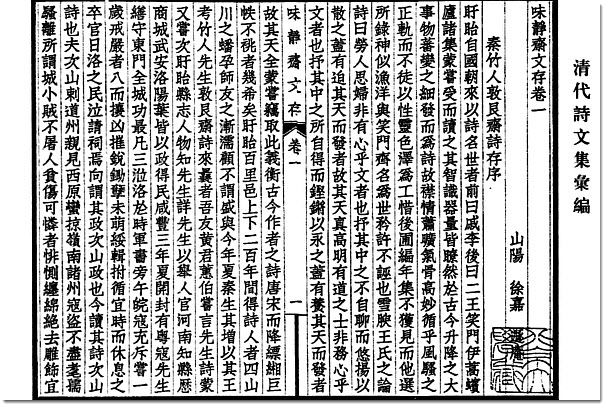 清代詩文集彙編
味靜齋文存卷一
山陽　徐嘉
秦竹人敦艮齋詩存序
盱眙自國朝來以詩名世者前曰戚李後曰二王笑門伊蒿蠙
廬諸集蒙嘗受而讀之其智識器量皆瞭然於古今升降之大
事物蕃變之細發而爲詩故襟情蕭曠氣骨高妙循乎風騷之
正軌而不徒以性靈色澤爲工惜後圃編年集不獲見而他選
所錄神似漁洋與笑門齋名爲世矜許不誣也雪腴王氏之論
詩曰勞人思婦非有心乎文者也抒其中之不自聊而悠揚以
散之蓋有迫其天而發者故其天真高明有道之士非務心乎
文者也抒其中之所自得而鏗鏘以永之蓋有養其天而發者
味靜齋文存　卷一　一
故其天全蒙嘗竊取此義衡古今作者之詩唐宋而降縹緗巨
帙不祧者幾希矣盱眙百里邑上下二百年間得詩人者四山
川之蟠孕師友之漸濡顧不謂盛與今年夏秦生其增以其王
考竹人先生敦艮齋詩來曩者吾友黃君蕙伯嘗言先生詩蒙
又嘗次盱眙縣志人物知先生詳先生以舉人官河南知縣歷
商城武安洛陽葉皆以政得民咸豐三年夏開封有粵寇先生
繕守東門全城功最凡三涖洛於時軍書旁午皖寇充斥嘗一
歲戒嚴者八而擾凶摧銳鋤孽未萌綏輯拊循宜時而休息之
卒官日洛之民泣請祠焉向謂其政次山政也今讀其詩次山
詩也夫次山刺道州親見西原蠻掠嶺南諸州寇盜不盡耄孺
騷離所謂城小賊不屠人貧傷可憐者悱惻纏綿絶去雕飾宜